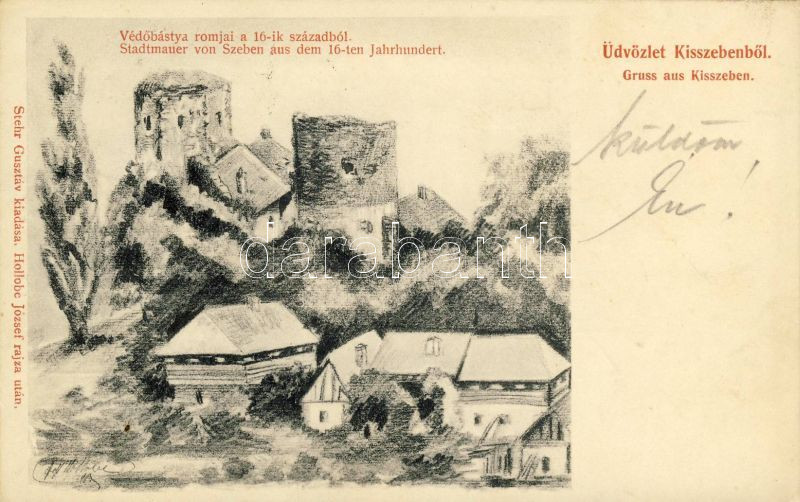 Védőbástya romjai a 16-ik századból.
Stadtmauer von Szeben aus dem 16-ten Jahrhundert.
Üdvözlet Kisszebenből.
Gruss aus Kisszeben.
küldöm
Én!
Stehr Gusztáv kiadása. Hollobc József rajza után.
darabanth